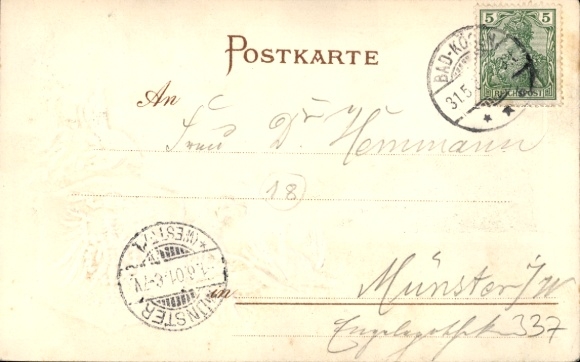 POSTKARTE
5 5
REICHSPOST
BAD-KÖSEN
31.5.
An
Frau Dr Hemmann
18
MÜNSTER
(WESTF.)
1.6.01.6-7V.
in
Münster i/W
337